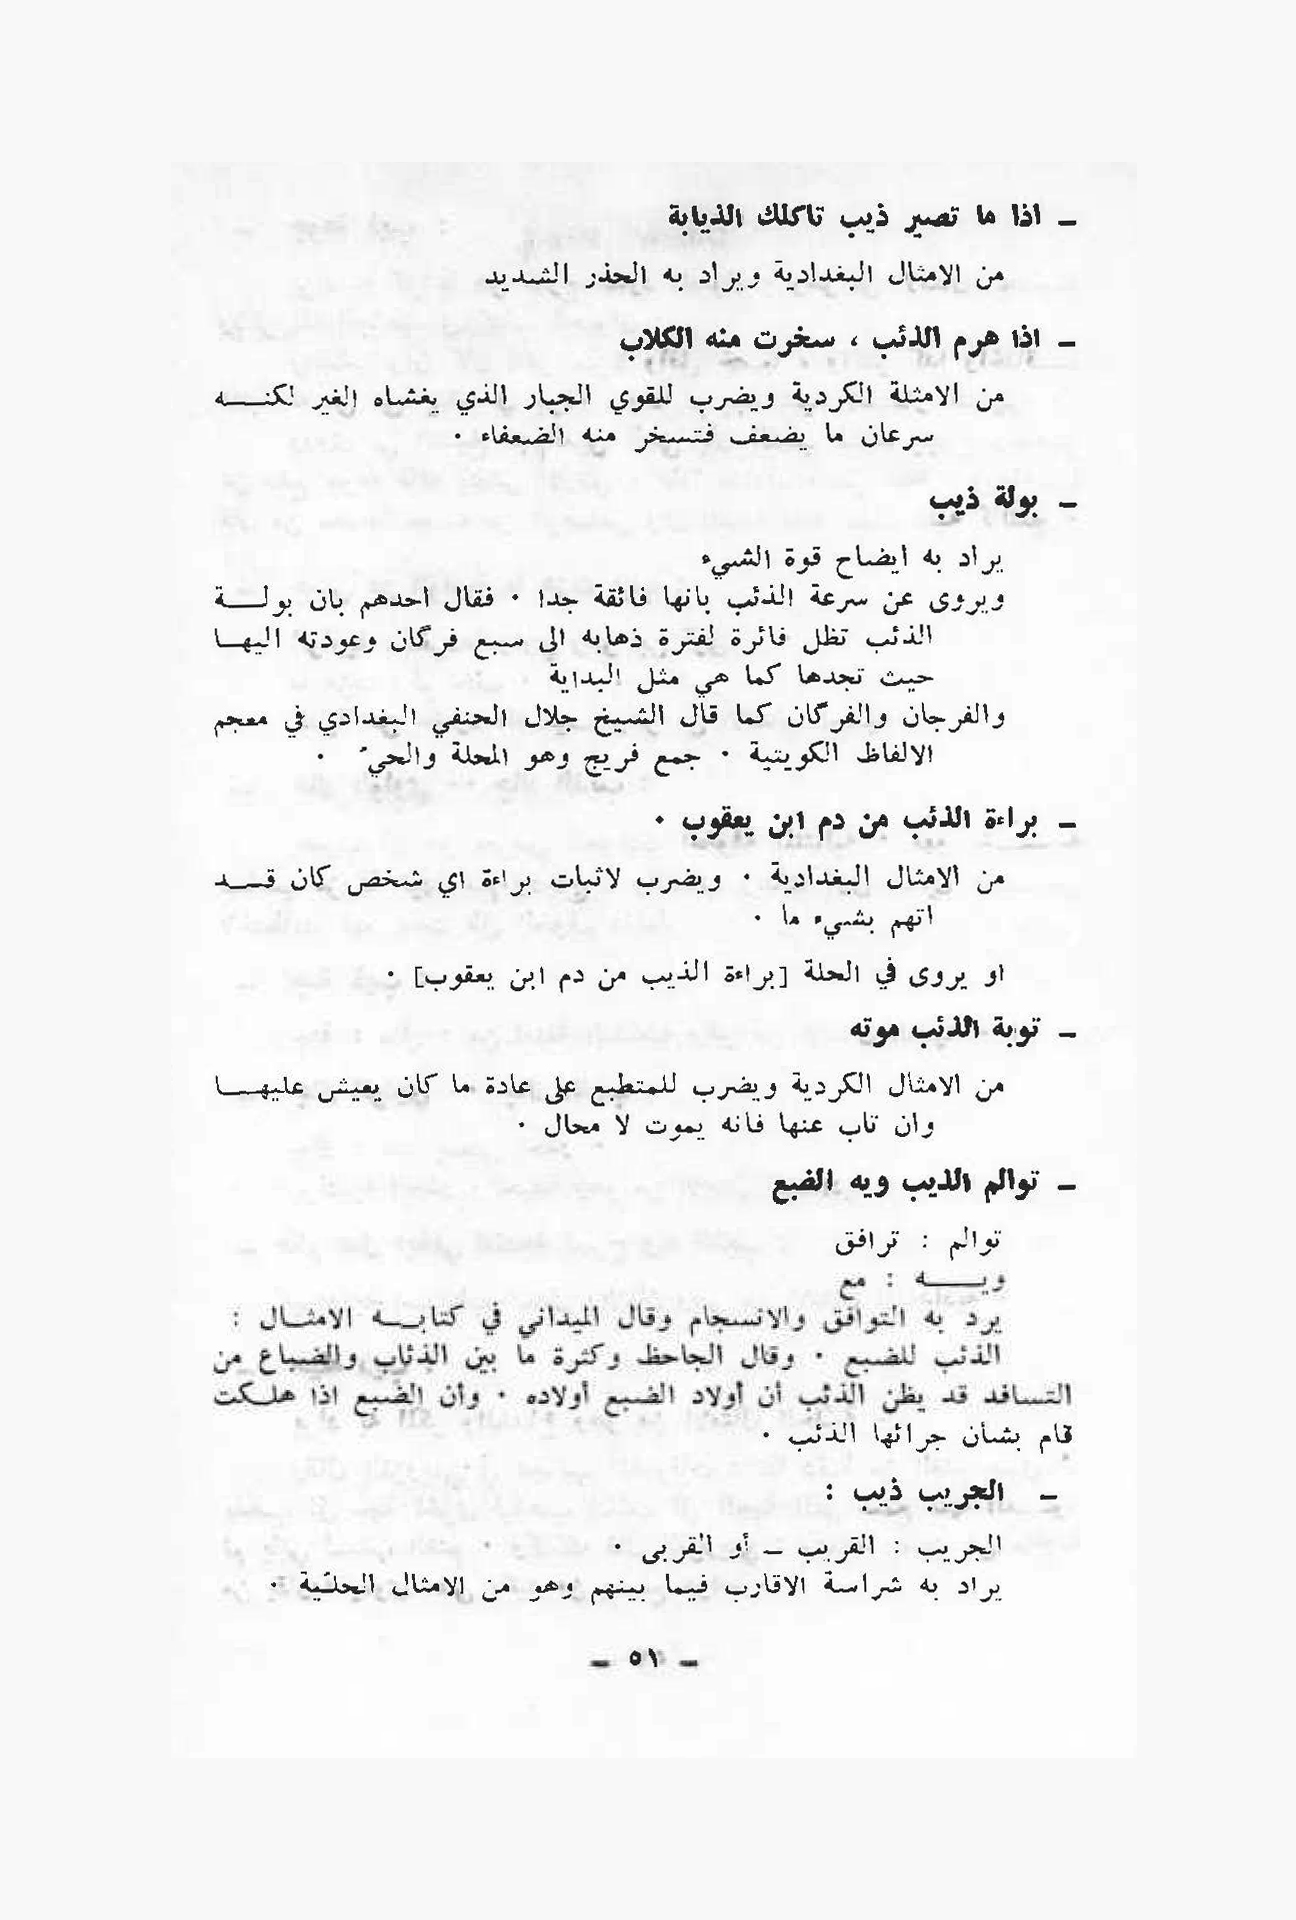 ـ اذا ما تصير ذيب تاكلك الذيابة
من الامثال البغدادية ويراد به الحذر الشديد
ـ اذا هرم الذئب ، سخرت منه الكلاب
من الامثلة الكردية ويضرب للقوي الجبار الذي يغشاه الغير لكنـــه
سرعان ما يضعف فتسخر منه الضعفاء ٠
ـ بولة ذيب
يراد به ايضاح قوة الشيء
ويروى عن سرعة الذئب بانها فائقة جدا ٠ فقال احدهم بان بولـــة
الذئب تظل فائرة لفترة ذهابه الى سبع فرگان وعودته اليهــا
حيث تجدها كما هي مثل البداية ٠
والفرجان والفرگان كما قال الشيخ جلال الحنفي البغدادي في معجم
الالفاظ الكويتية ٠ جمع فريج وهو المحلة والحيّ ٠
ـ براءة الذئب من دم ابن يعقوب ٠
من الامثال البغدادية ٠ ويضرب لاثبات براءة اي شخص كان قـــد
اتهم بشيء ما ٠
او يروى في الحلة [براءة الذيب من دم ابن يعقوب] ٠
ـ توبة الذئب موته
من الامثال الكردية ويضرب للمتطبع على عادة ما كان يعيش عليهــا
وان تاب عنها فانه يموت لا محال ٠
ـ توالم الذيب ويه الضبع
توالم : ترافق
ويــــه : مع
يرد به التوافق والانسجام وقال الميداني في كتابــه الامثــال :
الذئب للضبع ٠ وقال الجاحظ وكثرة ما بين الذئاب والضباع من
التسافد قد يظن الذئب أن أولاد الضبع أولاده ٠ وأن الضبع اذا هلـكت
قام بشأن جرائها الذئب ٠
ـ الجريب ذيب :
الجريب : القريب ـ أو القربى ٠
يراد به شراسة الاقارب فيما بينهم وهو من الامثال الحلـّية ٠
ـ ٥١ ـ